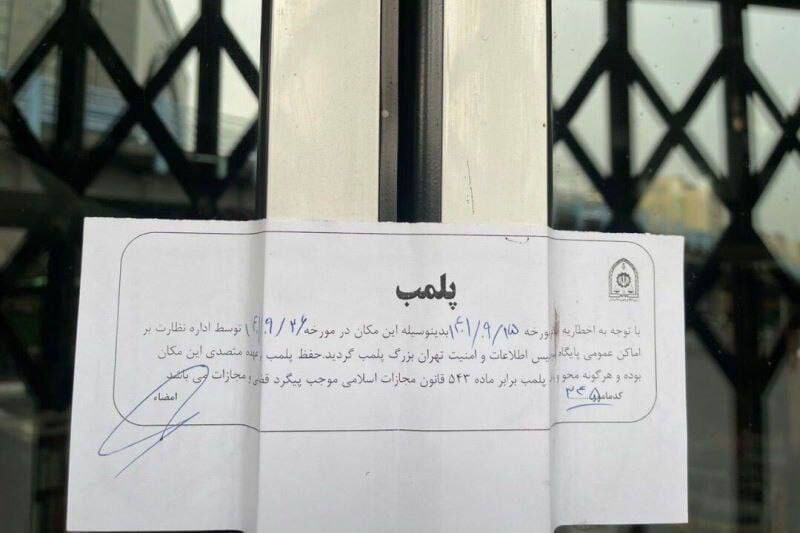 پلمب
با توجه به اخطاریه مورخه ۱۴۰۱/۹/۲۵ بدینوسیله این مکان در مورخه ۱۴۰۱/۹/۲۶ توسط اداره نظارت بر
اماکن عمومی پایگاه پلیس اطلاعات و امنیت تهران بزرگ پلمب گردید.حفظ پلمب بعهده متصدی این مکان
بوده و هرگونه محو پلمب برابر ماده ۵۴۳ قانون مجازات اسلامی موجب پیگرد و مجازات می باشد
کدمامور
امضاء